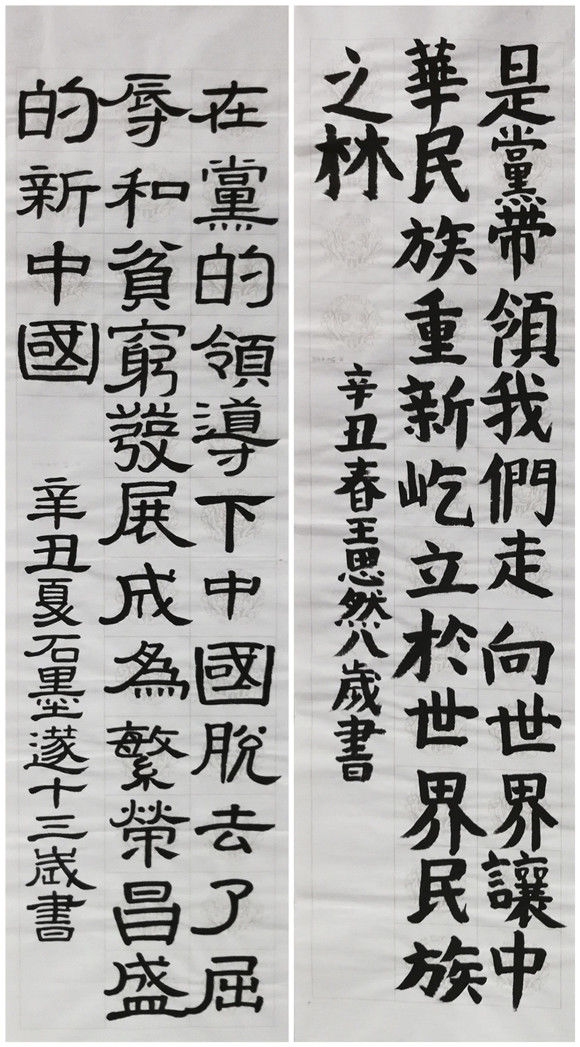 是黨帶領我們走向世界讓中
華民族重新屹立於世界民族
之林
辛丑春王思然八歲書
在黨的領導下中國脫去了屈
辱和貧窮發展成為繁榮昌盛
的新中國
辛丑夏石墨遂十三歲書